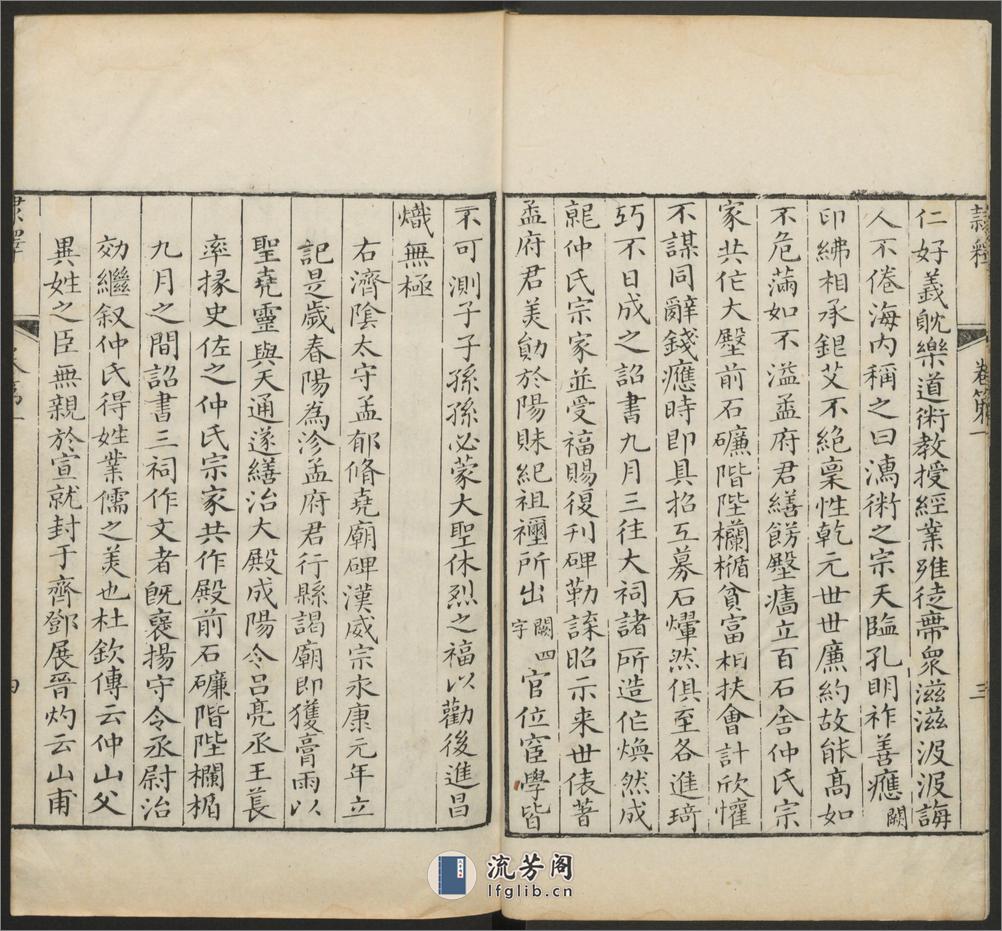 隷釋
卷第一
三
仁好義躭樂道術教授經業雖徒帶衆滋滋汲汲誨
人不倦海内稱之曰漓術之宗天臨孔明祚善應闕
印紼相承銀艾不絶稟性乾元世世廉約故能髙如
不危滿如不溢孟府君繕餝壂廧立百石舍仲氏宗
家共作大壂前石磏階陛欄楯貧富相扶會計欣懽
不謀同辭錢應時即具招工募石㷶然俱至各進琦
巧不日成之詔書九月三往大祠諸所造作煥然成
就仲氏宗家並受福賜復刋碑勒諜昭示来世俵著
孟府君美勛於陽䀲紀祖禰所出闕四字官位宦學皆
不可測子子孫孫必蒙大聖休烈之福以勸後進昌
熾無極
右濟陰太守孟郁脩堯廟碑漢威宗永康元年立
記是歲春陽為沴孟府君行縣謁廟即獲膏雨以
聖堯靈與天通遂繕治大殿成陽令吕亮丞王萇
率掾史佐之仲氏宗家共作殿前石磏階陛欄楯
九月之間詔書三祠作文者既襃揚守令丞尉治
効繼叙仲氏得姓業儒之美也杜欽傳云仲山父
異姓之臣無親於宣就封于齊鄧展晉灼云山甫
流芳阁
lfglib.cn